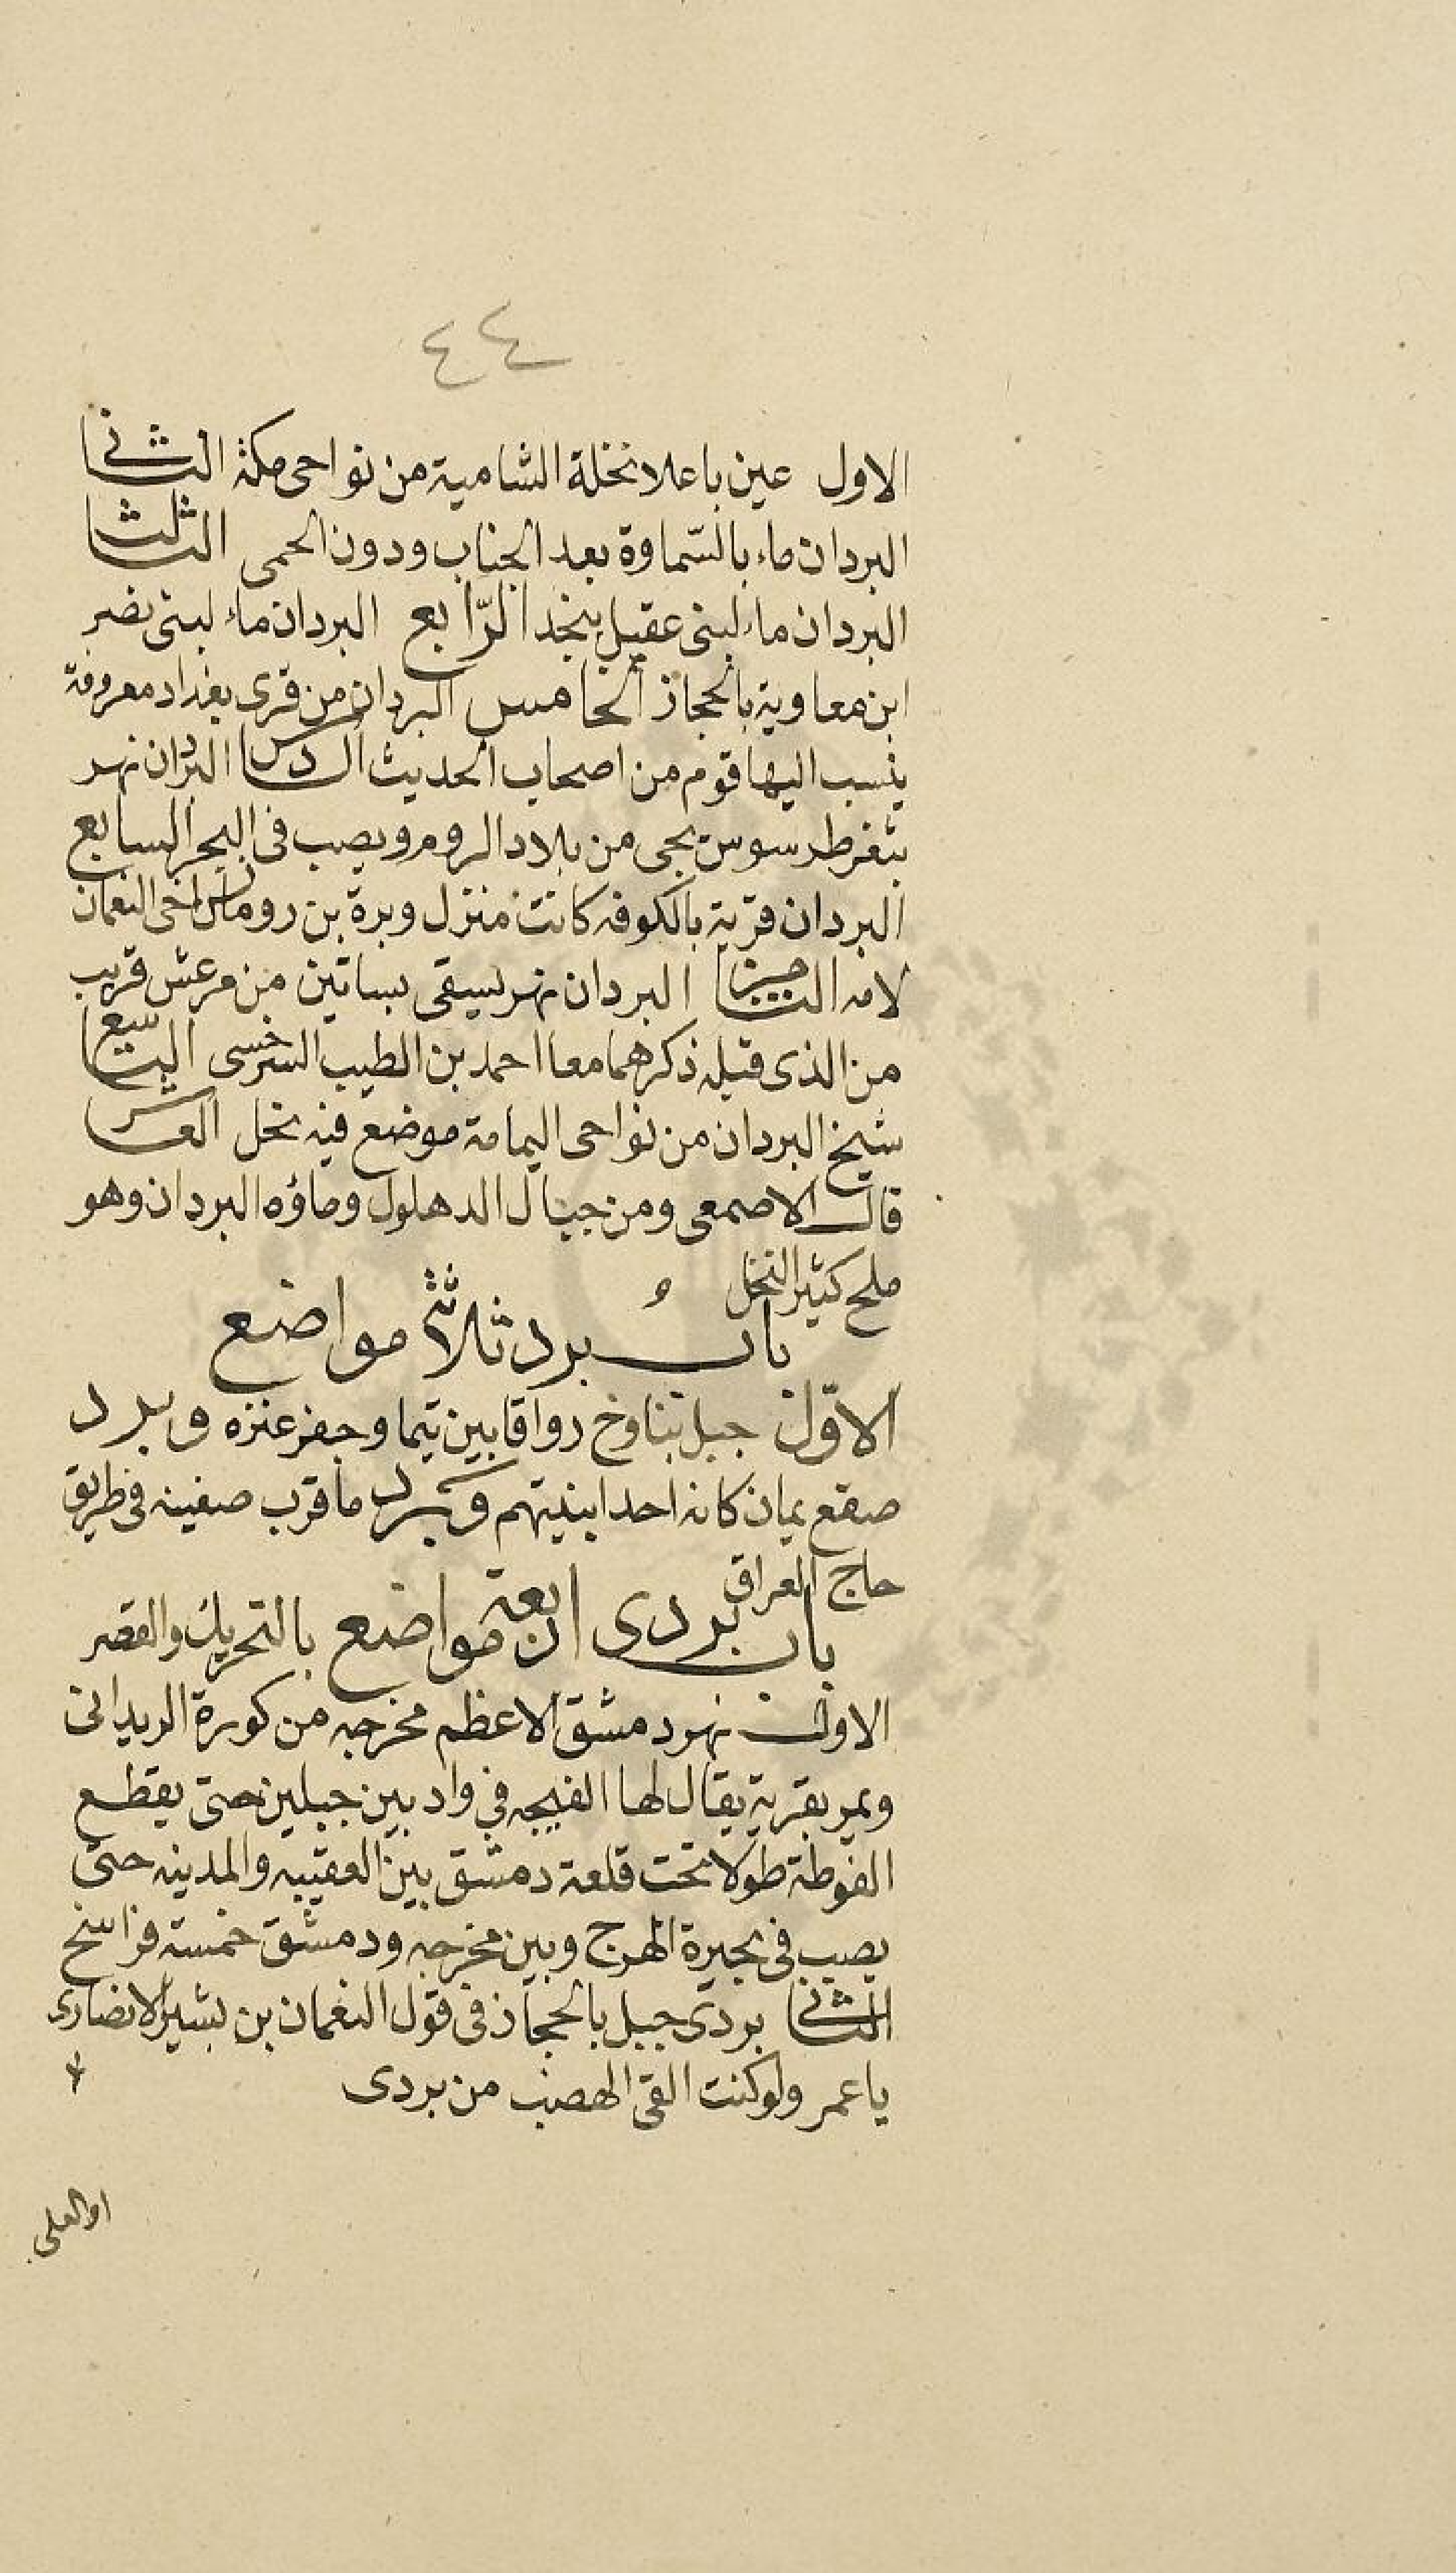 ٤٤
الاول عين باعلا نخلة الشامية من نواحى مكة الثانى
البردان ماء بالسّماوة بعد الجناب ودون الحمى الثالث
البردان ماء لبنى عقيل بنجد الرّابع البردان ماء لبنى نضر
ابن معاوية بالحجاز الخامس البردان من قرى بغداد معروفة
ينسب اليها قوم من اصحاب الحديث السادس البردان نهر
بثغر طرسوس يجى من بلاد الروم ويصب فى البحر السابع
البردان قرية بالكوفه كانت منزل وبرة بن رومانس اخى النعمان
لامه الثامن البردان نهر يسقى بساتين من مرعش قريب
من الذى قبله ذكرهما معا احمد بن الطيب السرخسى التاسع
شيخ البردان من نواحى اليمامة موضع فيه نخل العاشر
قال الاصمعى ومن جبال الدهلول وماؤه البردان وهو
ملح كثير النخل
باب برد ثلاثة مواضع
الاوّل جبل يناوخ روافا بين تيما وجفر عنزه وبرد
صقع يمان كانه احد ابنيتهم وبرد ما قرب صفينه فى طريق
حاج العراق
باب بردى اربعة مواضع بالتحريك والقصر
الاول نهر دمشق الاعظم مخرجه من كورة الربدانى
ويمر بقرية يقال لها الفيجه فى واد بين جبلين حتى يقطع
الغوطة طولا تحت قلعة دمشق بين العقيبه والمدينه حتى
يصب فى بحيرة المرج وبين مخرجه ودمشق خمسة فراسخ
الثانى بردى جبل بالحجاز فى قول النعمان بن بشير الانصارى
يا عمر ولو كنت القى الهضب من بردى
او العلى